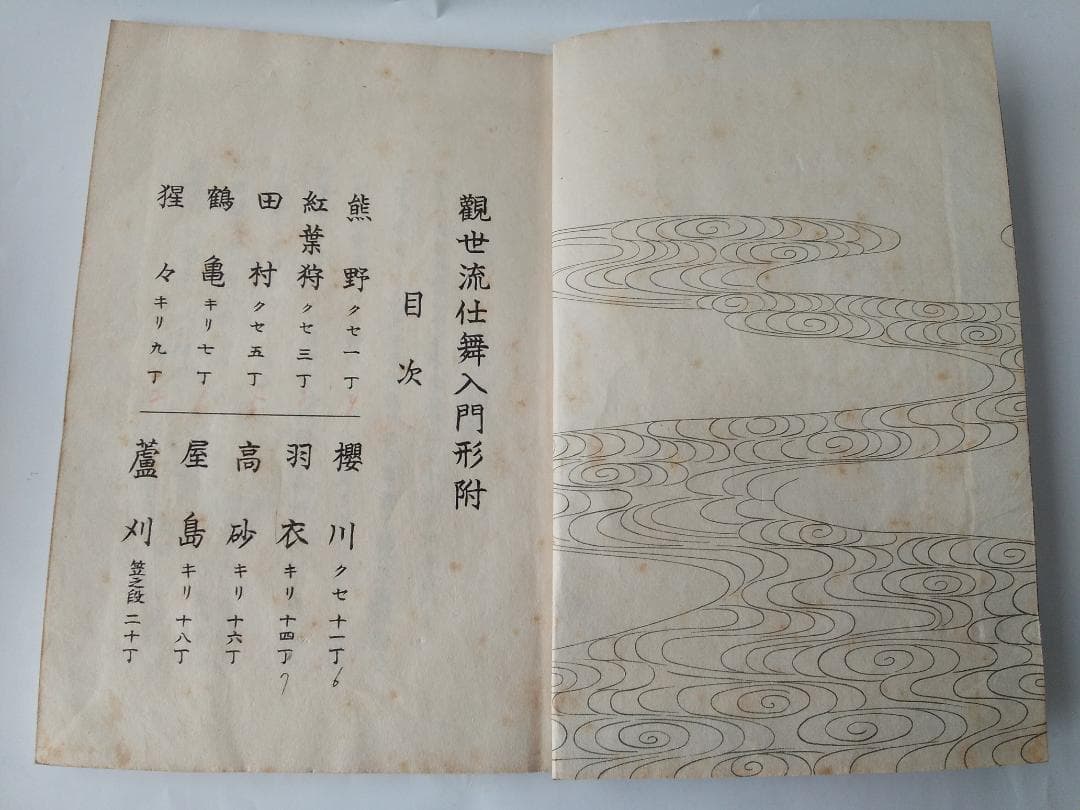 觀世流仕舞入門形附
目次
熊野クセ一丁
紅葉狩クセ三丁
田村クセ五丁
鶴亀キリ七丁
猩々キリ九丁
櫻川クセ十一丁6
羽衣キリ十四丁7
高砂キリ十六丁
屋島キリ十八丁
蘆刈笠之段二十丁